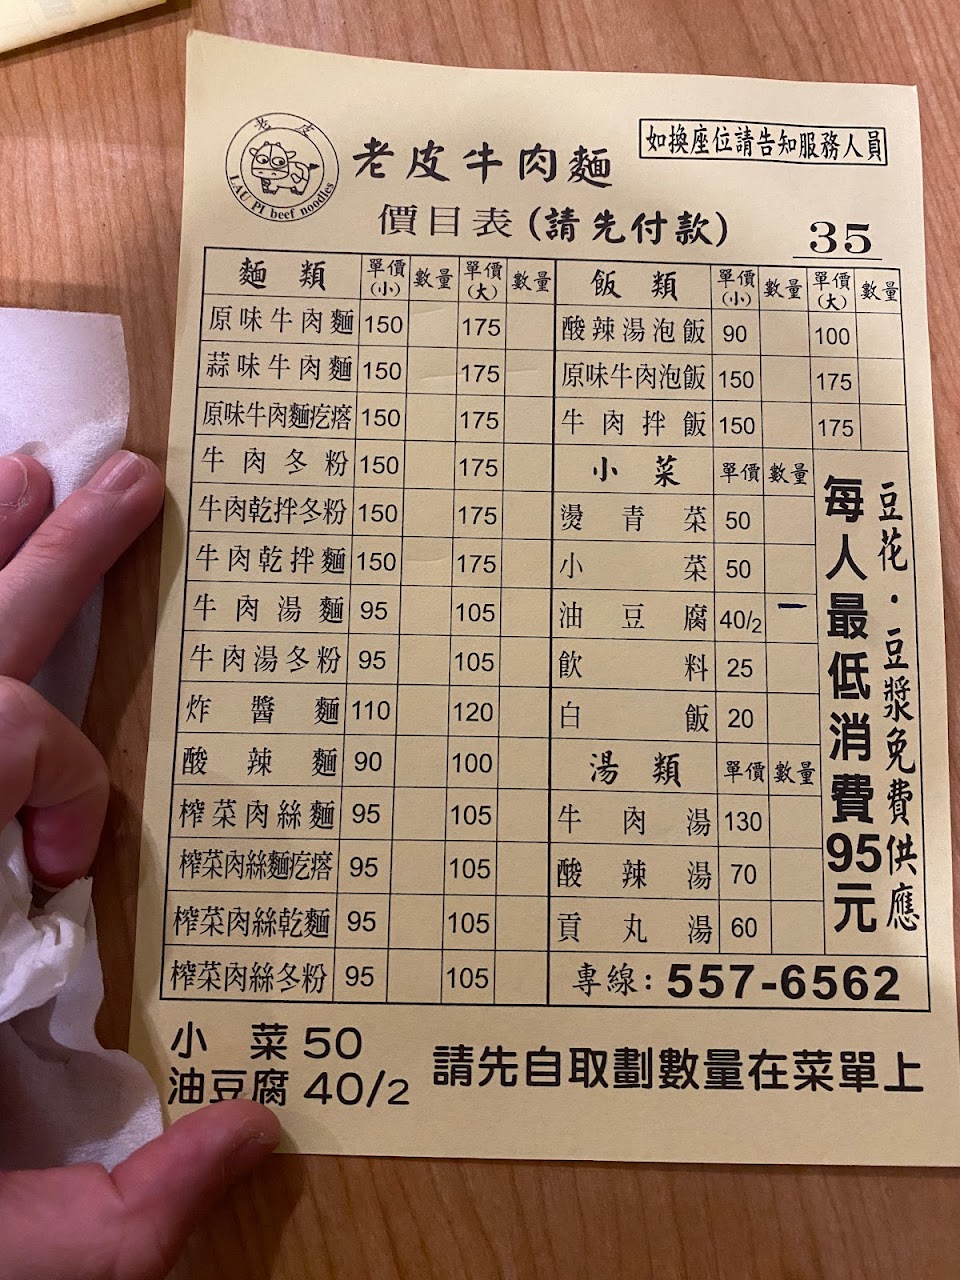 老皮
LAU PI beef noodles
老皮牛肉麵
如換座位請告知服務人員
價目表(請先付款)
35
麵類 單價(小) 數量 單價(大) 數量
原味牛肉麵 150 175
蒜味牛肉麵 150 175
原味牛肉麵疙瘩 150 175
牛肉冬粉 150 175
牛肉乾拌冬粉 150 175
牛肉乾拌麵 150 175
牛肉湯麵 95 105
牛肉湯冬粉 95 105
炸醬麵 110 120
酸辣麵 90 100
榨菜肉絲麵 95 105
榨菜肉絲麵疙瘩 95 105
榨菜肉絲乾麵 95 105
榨菜肉絲冬粉 95 105
飯類 單價(小) 數量 單價(大) 數量
酸辣湯泡飯 90 100
原味牛肉泡飯 150 175
牛肉拌飯 150 175
小菜 單價 數量
燙青菜 50
小菜 50
油豆腐 40/2 一
飲料 25
白飯 20
湯類 單價 數量
牛肉湯 130
酸辣湯 70
貢丸湯 60
豆花·豆漿免費供應
每人最低消費95元
專線:557-6562
小菜 50
油豆腐 40/2
請先自取劃數量在菜單上